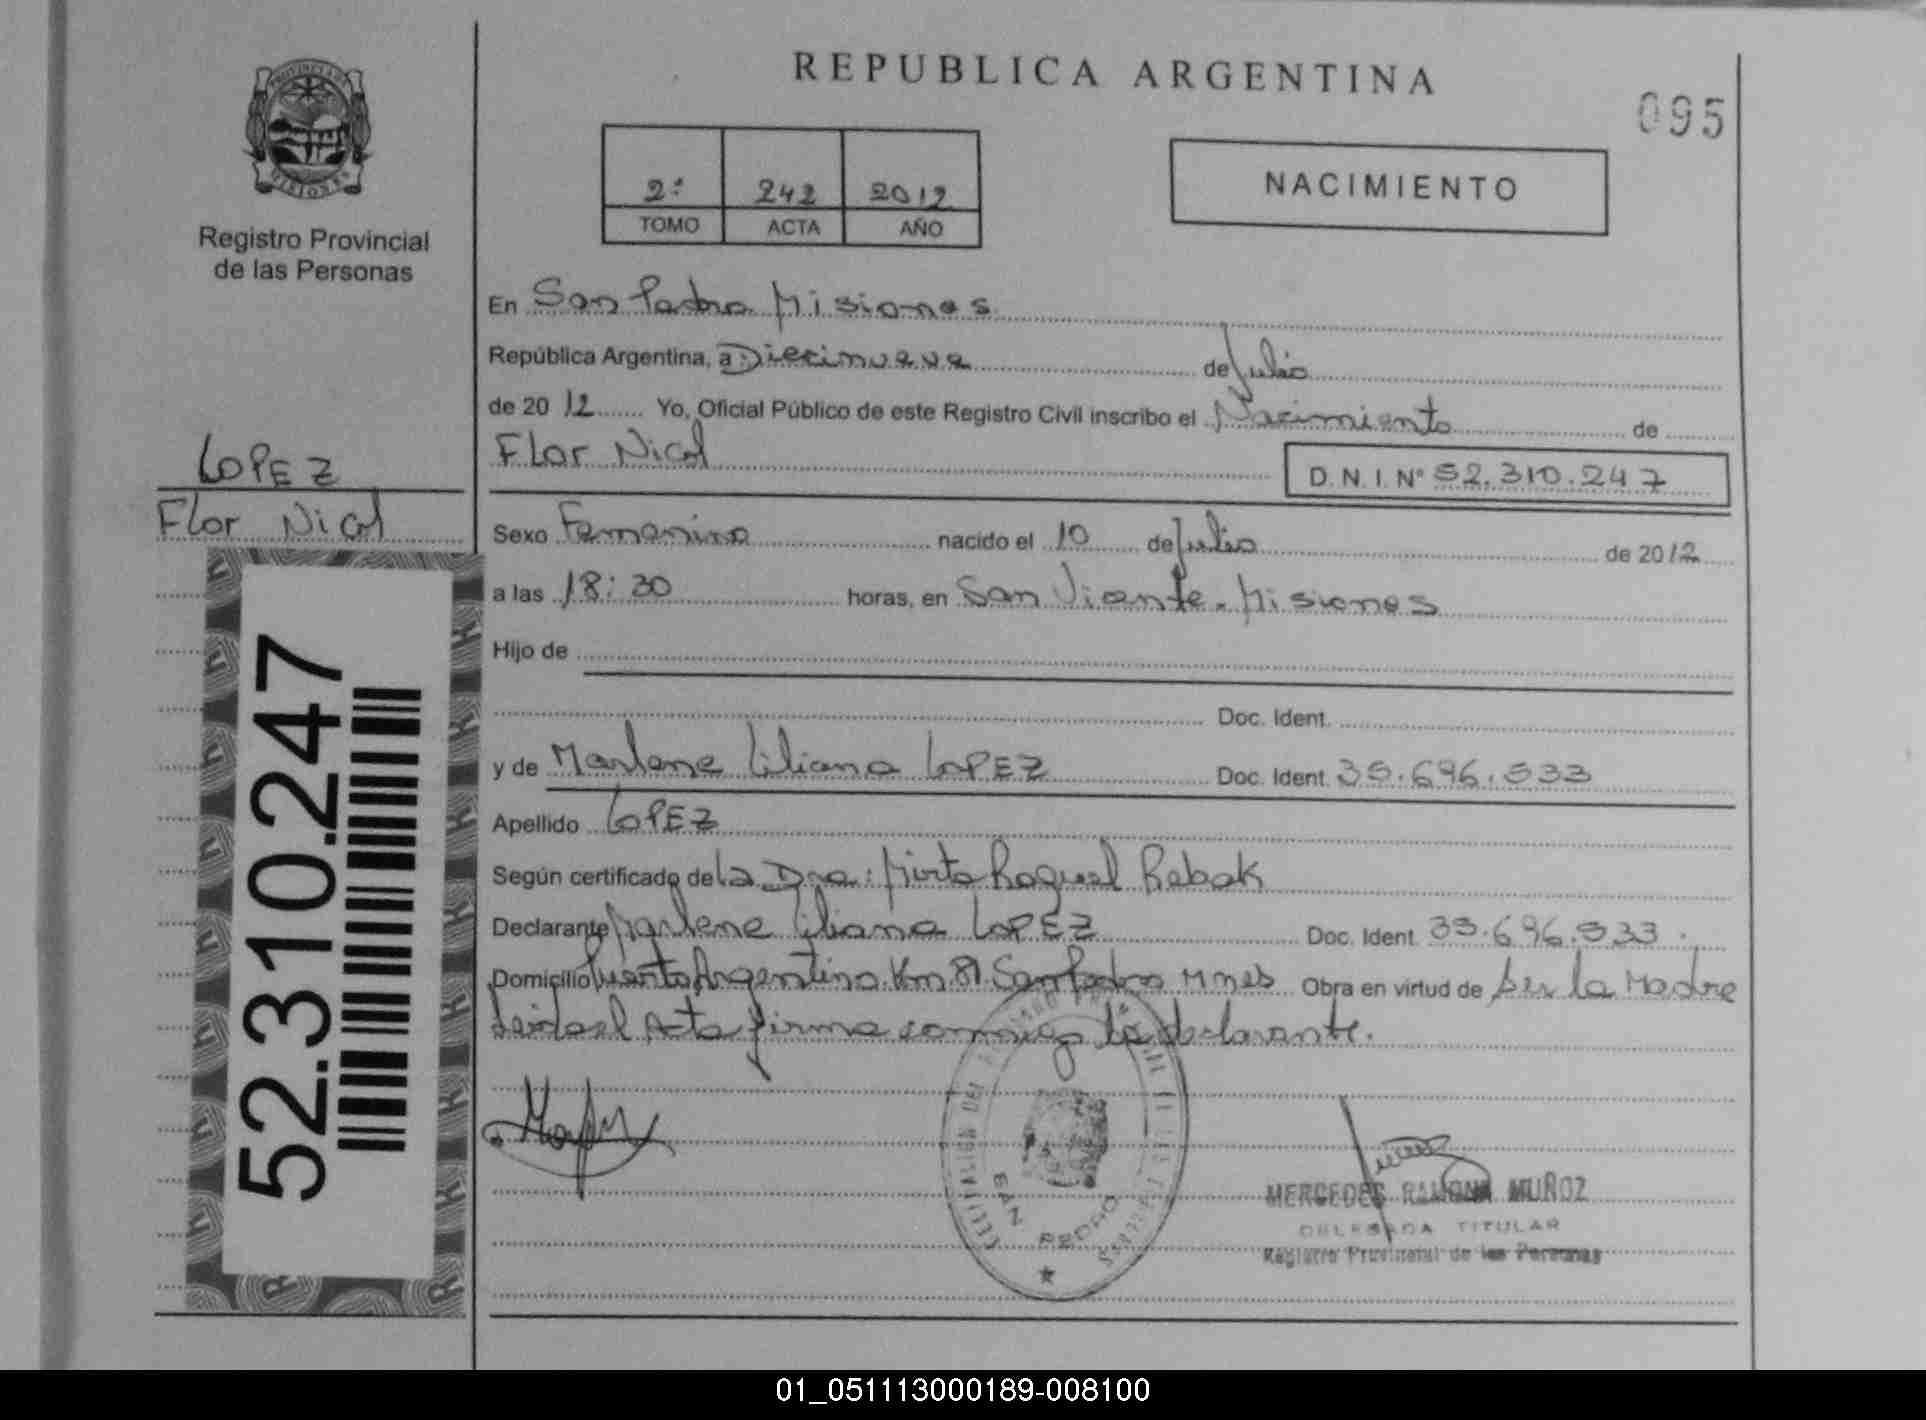 REPUBLICA ARGENTINA
095
PROVINCIA DE
MISIONES
Registro Provincial
de las Personas
2º 242 2012
TOMO ACTA AÑO
NACIMIENTO
En San Pedro Misiones
República Argentina, a Diecinueve de Julio
de 2012 Yo, Oficial Público de este Registro Civil inscribo el Nacimiento de
Flor Nicol
D.N.I. Nº 52.310.247
LOPEZ
Flor Nicol
52.310.247
Sexo Femenino nacido el 10 de Julio de 2012
a las 18:30 horas, en San Vicente - Misiones
Hijo de
Doc. Ident.
y de Marlene Liliana LOPEZ Doc. Ident. 35.696.533
Apellido LOPEZ
Según certificado de La Dra: Mirta Raquel Rebak
Declarante Marlene Liliana LOPEZ Doc. Ident. 35.696.533.
Domicilio Puerto Argentino Km 81 San Pedro Mnes Obra en virtud de Ser la Madre
Leida el Acta firma conmigo la declarante.
SAN PEDRO
MERCEDES RAMONA MUÑOZ
DELEGADA TITULAR
Registro Provincial de las Personas
01_051113000189-008100